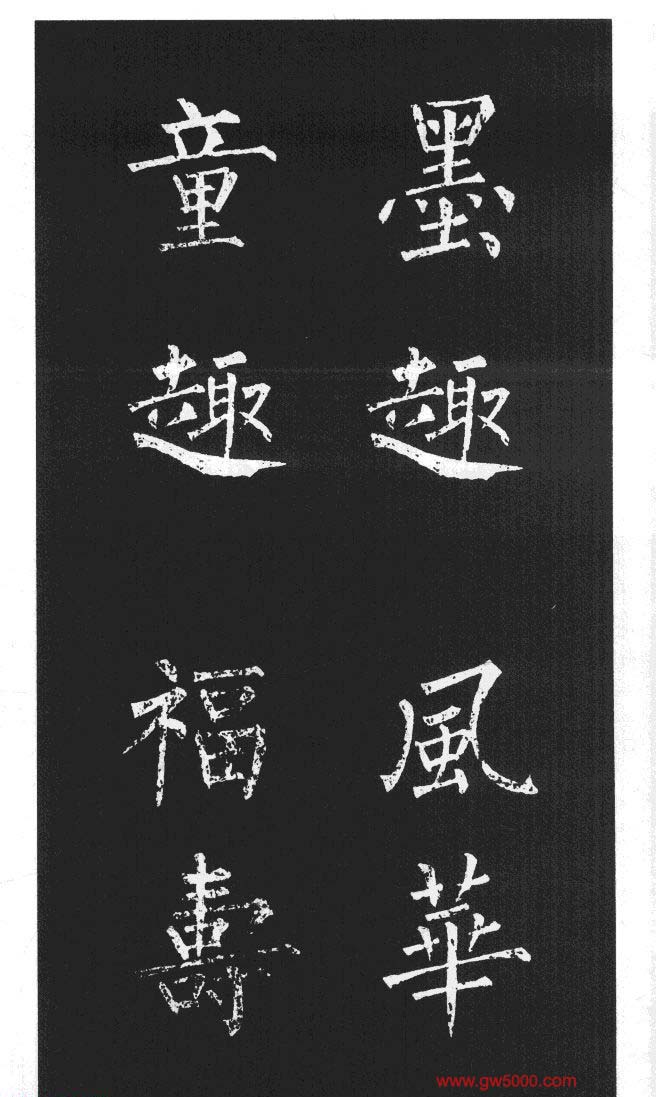 墨趣
童趣
風華
福壽
www.gw5000.com